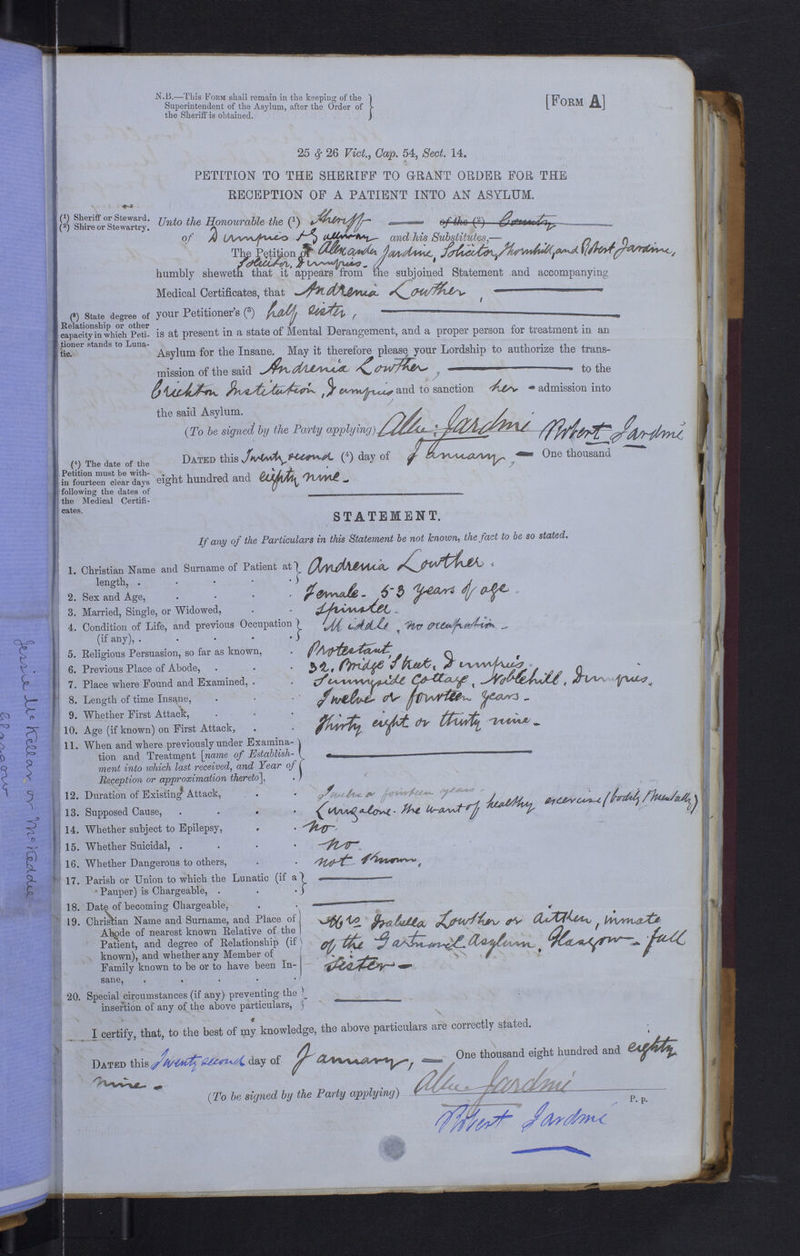 N.B.—This Form shall remain in the keeping of the
Superintendent of the Asylum, after the Order of
the Sheriff is obtained.
[Form A]
25 & 26 Vict., Cap. 54, Sect. 14.
PETITION TO THE SHERIFF TO GRANT ORDER FOR THE
RECEPTION OF A PATIENT INTO AN ASYLUM.
(¹) Sheriff or Steward.
(²) Shire or Stewartry.
Unto the Honourable the (¹) Sheriff — of the (²) County
of Dumfries & Galloway and his Substitutes,—
The Petition of Alexander Jardine, Solicitor, Thornhill, and Robert Jardine,
Solicitor, Dumfries.
humbly sheweth that it appears from the subjoined Statement and accompanying
Medical Certificates, that Andrenia Lowther, —
(³) State degree of
Relationship or other
capacity in which Peti-
tioner stands to Luna-
tic.
your Petitioner's (³) half sister, —
is at present in a state of Mental Derangement, and a proper person for treatment in an
Asylum for the Insane. May it therefore please your Lordship to authorize the trans-
mission of the said Andrenia Lowther, — to the
Crichton Institution, Dumfries and to sanction her - admission into
the said Asylum.
(To be signed by the Party applying) Alex. Jardine Robert Jardine
(⁴) The date of the
Petition must be with-
in fourteen clear days
following the dates of
the Medical Certifi-
cates.
Dated this Twenty second (⁴) day of January, — One thousand
eight hundred and eighty nine -
STATEMENT.
If any of the Particulars in this Statement be not known, the fact to be so stated.
1. Christian Name and Surname of Patient at length, . Andrenia Lowther.
2. Sex and Age, Female - 53 years of age.
3. Married, Single, or Widowed, Spinster.
4. Condition of Life, and previous Occupation (if any), . Middle, no occupation -
5. Religious Persuasion, so far as known, Protestant,
6. Previous Place of Abode, 32, Bridge Street, Dumfries.
7. Place where Found and Examined, Sunnyside Cottage, Noblehill, Dumfries.
8. Length of time Insane, Twelve or fourteen years -
9. Whether First Attack,
10. Age (if known) on First Attack, Thirty eight or thirty nine -
11. When and where previously under Examina-
tion and Treatment [name of Establish-
ment into which last received, and Year of
Reception or approximation thereto], —
12. Duration of Existing Attack, Twelve or fourteen years.
13. Supposed Cause, Living alone. The want of healthy exercise (bodily & mentally)
14. Whether subject to Epilepsy, No
15. Whether Suicidal, No.
16. Whether Dangerous to others, not known,
17. Parish or Union to which the Lunatic (if a
Pauper) is Chargeable, —
18. Date of becoming Chargeable, —
19. Christian Name and Surname, and Place of
Abode of nearest known Relative of the
Patient, and degree of Relationship (if
known), and whether any Member of
Family known to be or to have been In-
sane,
Mrs Isabella Lowther or Aitken, inmate
of the Gartnavel Asylum, Glasgow - full
Sister -
20. Special circumstances (if any) preventing the
insertion of any of the above particulars, —
I certify, that, to the best of my knowledge, the above particulars are correctly stated.
Dated this Twenty second day of January, — One thousand eight hundred and eighty
nine -
(To be signed by the Party applying) Alex. Jardine
P. p.
Robert Jardine
Jessie McKellar or McKeddie
Glasgow